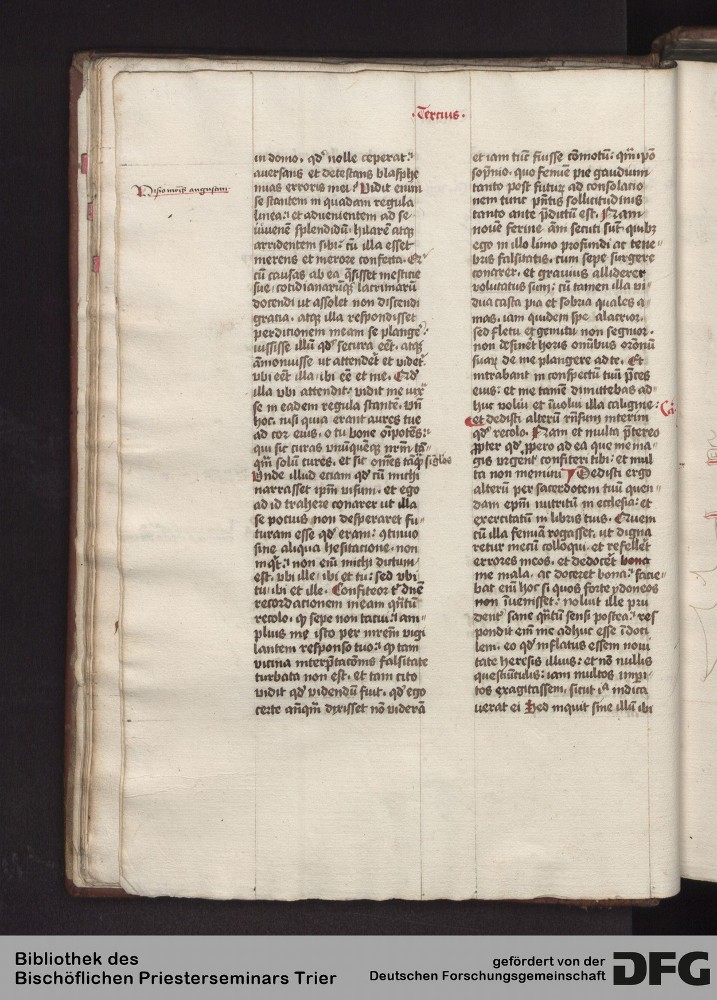 ·Tercius·
Visio matris augustini
in domo. qd' nolle ceperat:
aversans et detestans blasphe
mias erroris mei: Vidit enim
se stantem in quadam regula
linea: et advenientem ad se
iuvenem splendidum hilarem atque
arridentem sibi: cum illa esset
merens et merore confecta. Et
cum causas ab ea quesisset mesticie
sue cotidianarumque lacrimarum
docendi ut assolet non discendi
gracia. atque illa respondisset
perditionem meam se plangere:
iussisse illum quod secura esset. atque
ammonuisse ut attenderet et videret
ubi esset illa ibi esse et me. Quod
illa ubi attendit: vidit me iuxta
se in eadem regula stantem. Unde
hoc. nisi quia erant aures tue
ad cor eius. o tu bone omnipotens:
qui sic curas unumquemque nostrum tam
quam solum cures. et sic omnes tamquam singulos
Unde illud eciam quod cum michi
narrasset ipsum visum. et ego
ad id trahere conarer ut illa
se pocius non desperaret fu
turam esse quod eram: continuo
sine aliqua hesitacione. non
inquit: non enim michi dictum
est. ubi ille ibi et tu: sed ubi
tu ibi et ille. Confiteor tibi domine
recordacionem meam quantum
recolo. quod sepe non tacui: am
plius me isto per matrem vigi
lantem responso tuo: quod tam
vicina interpretacionis falsitate
turbata non est. et tam cito
vidit quod videndum fuit. quod ego
certe antequam dixisset non videram
etiam tunc fuisse commotum: quam ipso
sopnio. quo femine pie gaudium
tanto post futurum ad consolacio
nem tunc presentis sollicitudinis
tanto ante predictum est. Nam
novem ferme anni secuti sunt. quibus
ego in illo limo profundi ac tene
bris falsitatis. cum sepe surgere
conarer. et gravius alliderer
volutatus sum: cum tamen illa vi
dua casta pia et sobria quales a
mas. iam quidem spe alacrior.
sed fletu et gemitu non segnior.
non desineret horis omnibus oracionum
suarum de me plangere ad te. Et
intrabant in conspectum tuum preces
eius: et me tamen dimittebas ad
huc volvi et involvi illa caligine: Ca
et dedisti alterum responsum interim
quod recolo. Nam et multa pretereo
propter quod propero ad ea que me ma
gis urgent confiteri tibi: et mul
ta non memini Dedisti ergo
alterum per sacerdotem tuum quen
dam episcopum nutritum in ecclesia: et
exercitatum in libris tuis. Quem
cum illa femina rogasset. ut digna
retur mecum colloqui. et refelleret
errores meos. et dedoceret bona
me mala. ac doceret bona: facie
bat enim hoc si quos forte ydoneos
non invenisset: noluit ille pru
denter sane quantum sensi postea: res
pondit enim me adhuc esse indoci
lem. eo quod inflatus essem novi
tate heresis illius: et non nullis
questiunculis: iam multos imperi
tos exagitassem. sicut illa indica
verat ei Sed inquit sine illum ibi
Bibliothek des
Bischöflichen Priesterseminars Trier
gefördert von der
Deutschen Forschungsgemeinschaft
DFG